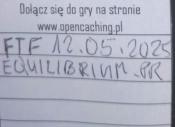 Dołącz się do gry na stronie
www.opencaching.pl
FTF 12.05.2025
EQUILIBRIUM_PR